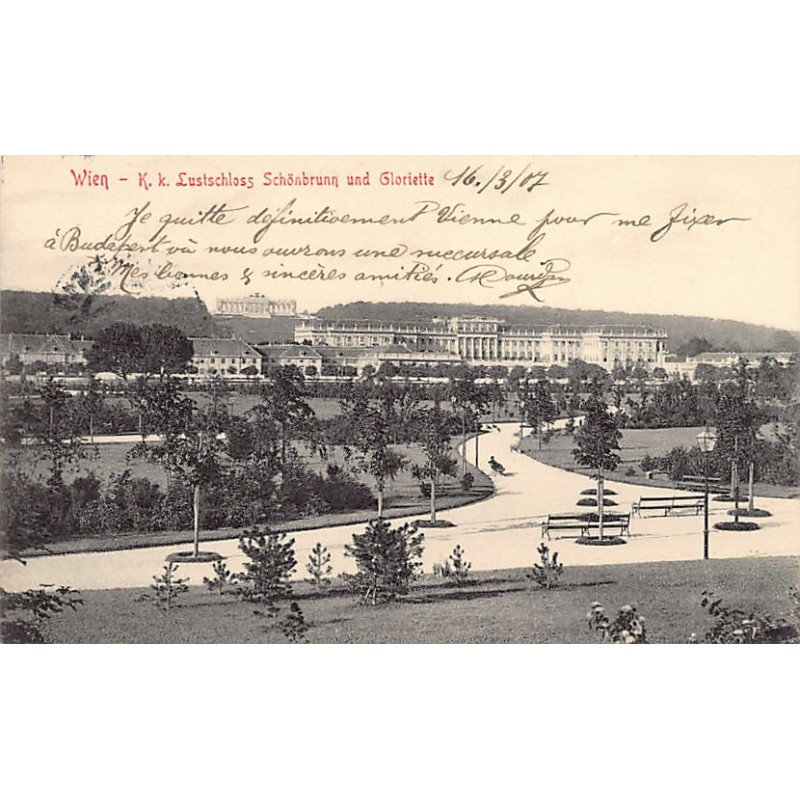 Wien - K. k. Lustschloss Schönbrunn und Gloriette 16./3/07
Je quitte définitivement Vienne pour me fixer
à Budapest où nous ouvrons une succursale.
Mes bonnes & sincères amitiés.